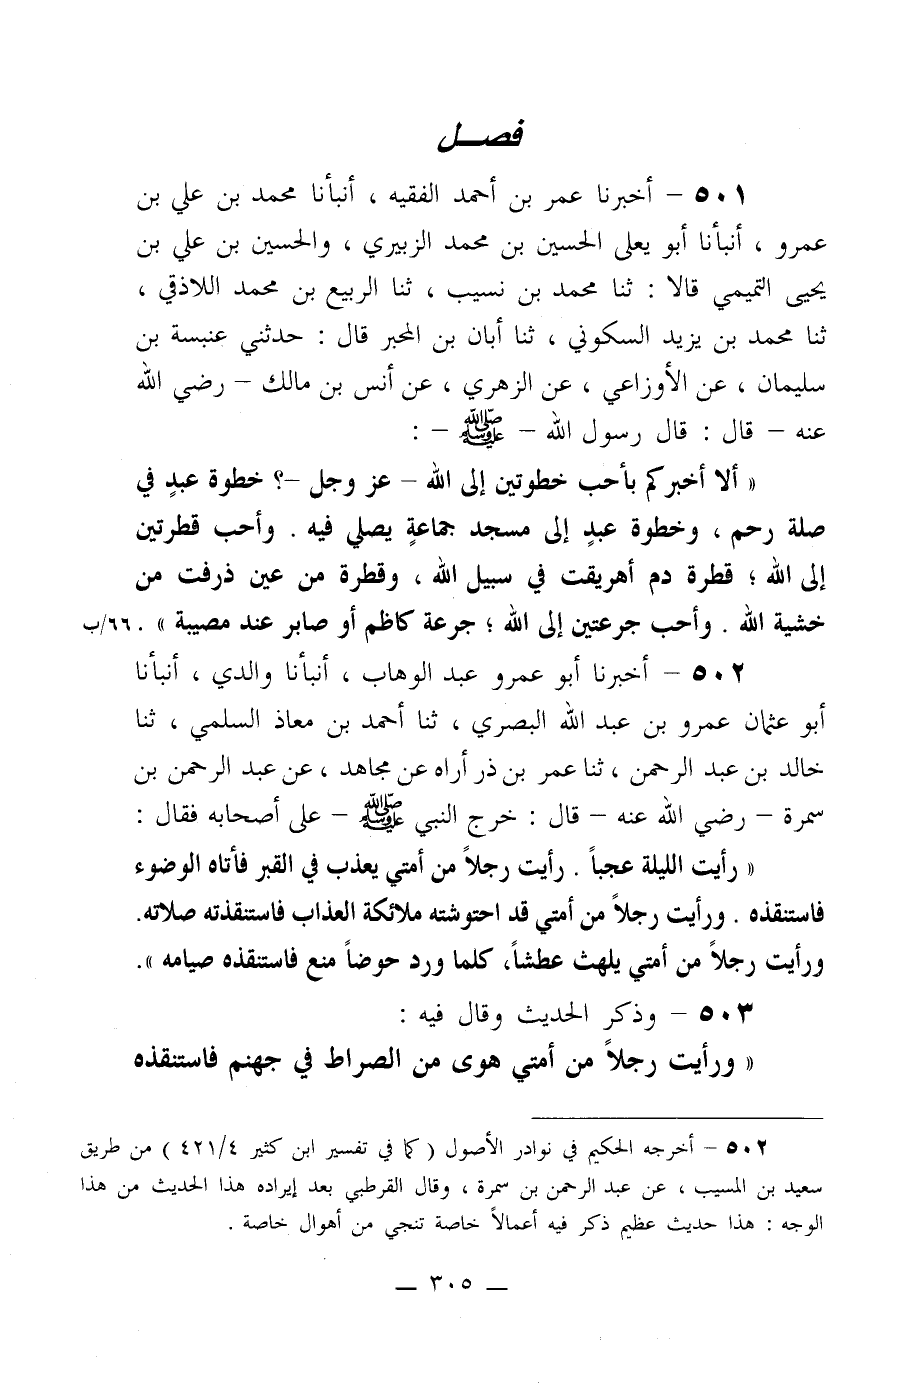 فصــل
٥٠١ – أخبرنا عمر بن أحمد الفقيه ، أنبأنا محمد بن علي بن
عمرو ، أنبأنا أبو يعلى الحسين بن محمد الزبيري ، والحسين بن علي بن
يحيى التميمي قالا : ثنا محمد بن نسيب ، ثنا الربيع بن محمد اللاذقي ،
ثنا محمد بن يزيد السكوني ، ثنا أبان بن المحبر قال : حدثني عنبسة بن
سليمان ، عن الأوزاعي ، عن الزهري ، عن أنس بن مالك – رضي الله
عنه – قال : قال رسول الله – ﷺ – :
« ألا أخبركم بأحب خطوتين إلى الله – عز وجل –؟ خطوة عبدٍ في
صلة رحم ، وخطوة عبدٍ إلى مسجد جماعةٍ يصلي فيه . وأحب قطرتين
إلى الله ؛ قطرة دم أهريقت في سبيل الله ، وقطرة من عين ذرفت من
خشية الله . وأحب جرعتين إلى الله ؛ جرعة كاظم أو صابر عند مصيبة » . ٦٦/ب
٥٠٢ – أخبرنا أبو عمرو عبد الوهاب ، أنبأنا والدي ، أنبأنا
أبو عثمان عمرو بن عبد الله البصري ، ثنا أحمد بن معاذ السلمي ، ثنا
خالد بن عبد الرحمن ، ثنا عمر بن ذر أراه عن مجاهد ، عن عبد الرحمن بن
سمرة – رضي الله عنه – قال : خرج النبي ﷺ – على أصحابه فقال :
« رأيت الليلة عجباً . رأيت رجلاً من أمتي يعذب في القبر فأتاه الوضوء
فاستنقذه . ورأيت رجلاً من أمتي قد احتوشته ملائكة العذاب فاستنقذته صلاته.
ورأيت رجلاً من أمتي يلهث عطشاً، كلما ورد حوضاً منع فاستنقذه صيامه ».
٥٠٣ – وذكر الحديث وقال فيه :
« ورأيت رجلاً من أمتي هوى من الصراط في جهنم فاستنقذه
٥٠٢ – أخرجه الحكيم في نوادر الأصول ( كما في تفسير ابن كثير ٤٢١/٤ ) من طريق
سعيد بن المسيب ، عن عبد الرحمن بن سمرة ، وقال القرطبي بعد إيراده هذا الحديث من هذا
الوجه : هذا حديث عظيم ذكر فيه أعمالاً خاصة تنجي من أهوال خاصة .
— ٣٠٥ —